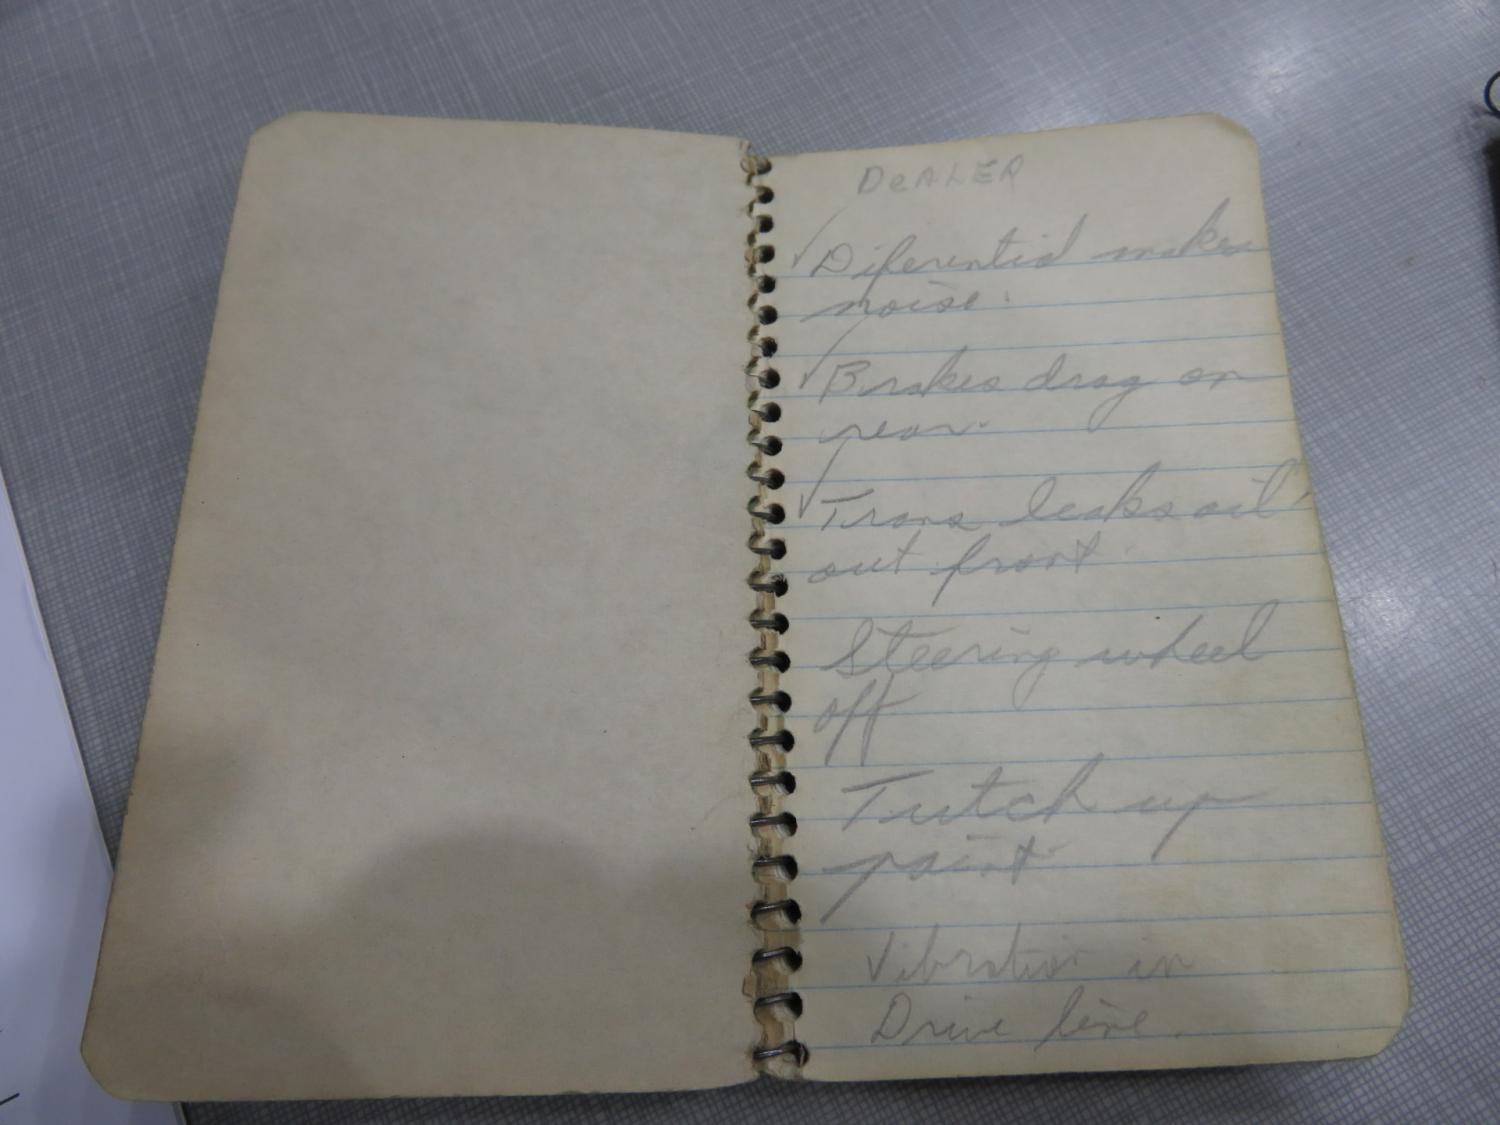 DeALER
✓ Diferential makes
noise.
✓ Brakes drag on
rear.
✓ Trans leaks oil
out front
Steering wheel
off
Tutch up
paint
Vibration in
Drive line.